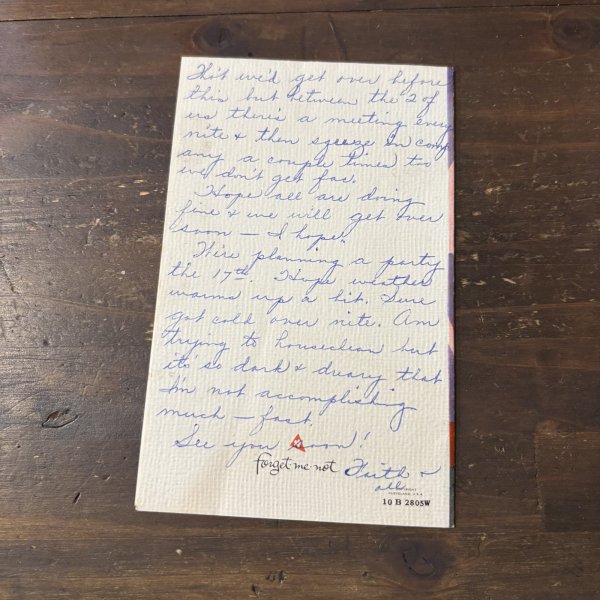 Tho't we'd get over before
this but between the 2 of
us there's a meeting every
nite & then sqeeze in comp
any a couple times too
we don't get far.
Hope all are doing
fine & we will get over
soon — I hope.
We're planning a party
the 17th. Hope weather
warms up a bit. Sure
got cold over nite. Am
trying to houseclean but
it's so dark & dreary that
I'm not accomplishing
much — fast.
See you soon!
forget me not
Faith &
all
CLEVELAND, U.S.A.
10 B 2805W